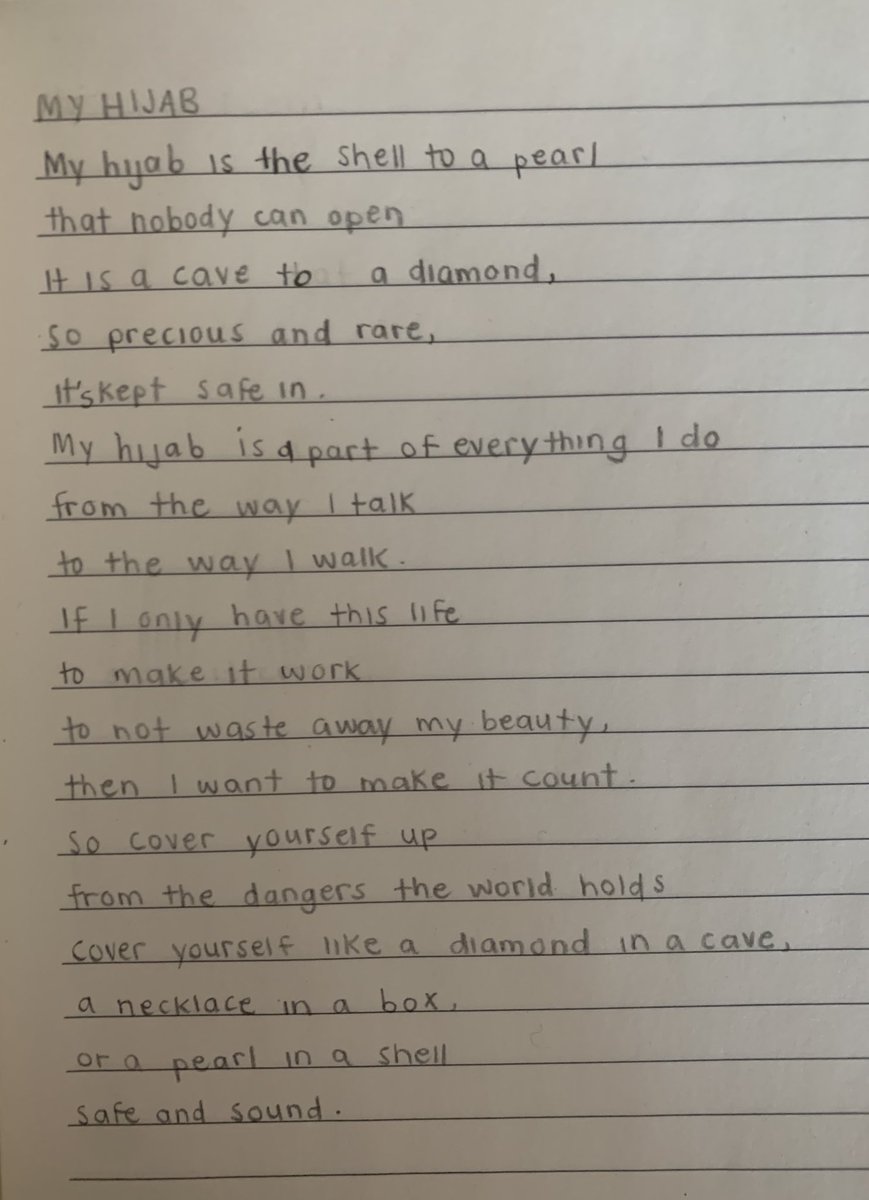 MY HIJAB
My hijab is the shell to a pearl
that nobody can open
It is a cave to a diamond,
so precious and rare,
it's kept safe in.
My hijab is a part of everything I do
from the way I talk
to the way I walk.
If I only have this life
to make it work
to not waste away my beauty,
then I want to make it count.
So cover yourself up
from the dangers the world holds
cover yourself like a diamond in a cave,
a necklace in a box,
or a pearl in a shell
safe and sound.